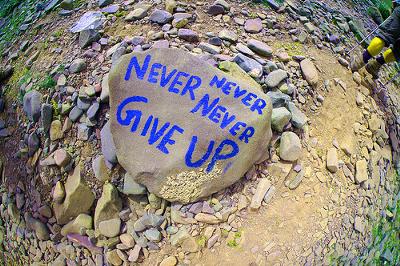 NEVER NEVER
NEVER
GIVE UP